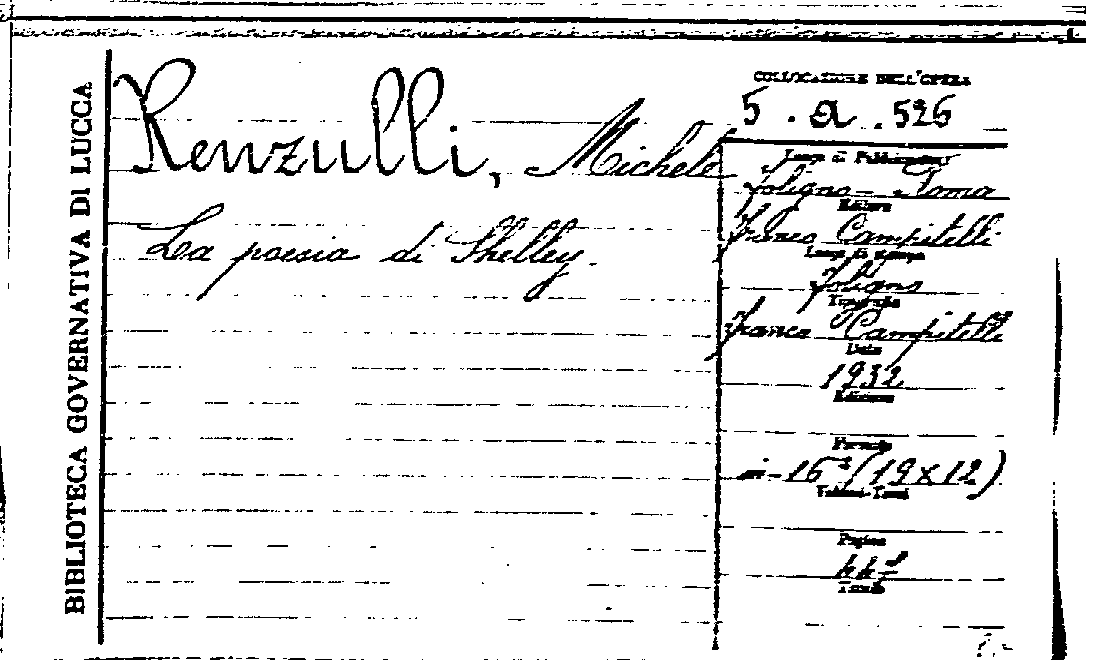 BIBLIOTECA GOVERNATIVA DI LUCCA
Renzulli, Michele
La poesia di Shelley.
COLLOCAZIONE DELL'OPERA
5 . a . 526
Luogo di Pubblicazione
Foligno - Roma
Editore
Franco Campitelli
Luogo di stampa
Foligno
Tipografia
Franco Campitelli
Data
1932
Edizione
Formato
in-16° (19x12)
Volumi-Tomi
Pagine